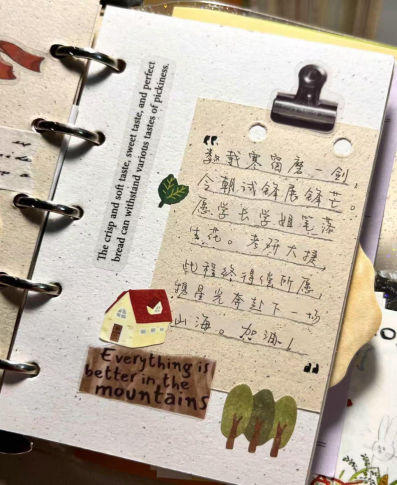 The crisp and soft taste, sweet taste, and perfect
bread can withstand various tastes of pickiness.
"
数载寒窗磨一剑,
今朝试锋展锋芒。
愿学长学姐笔落
生花。考研大捷,
此程终得偿所愿,
携星光奔赴下一场
山海。加油!
"
Everything is
better in the
mountains